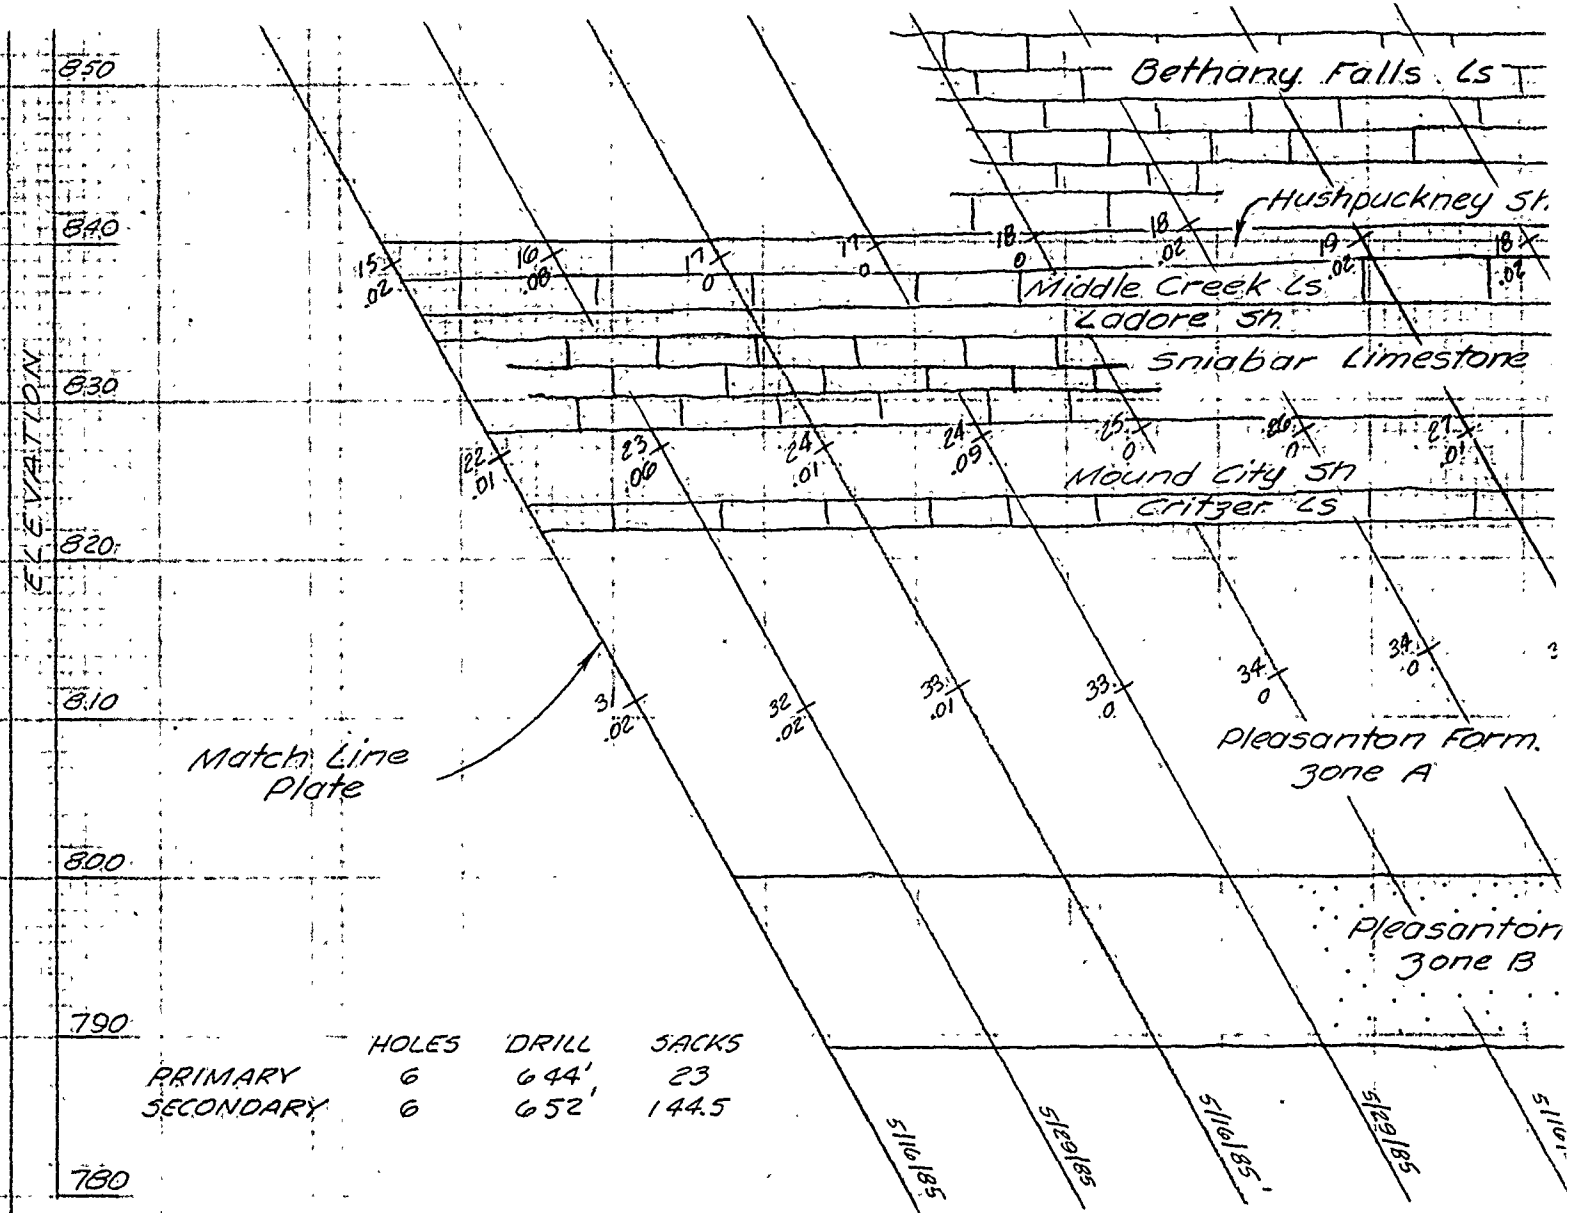 850
Bethany Falls Ls
Hushpuckney Sh.
840
15
.02
16
.08
17
0
17
0
18
0
18
.02
19
.02
18
.02
Middle Creek Ls
Ladore Sh
Sniabar Limestone
ELEVATION
830
22
.01
23
.06
24
.01
24
.09
25
0
26
0
27
.01
Mound City Sh
Critzer Ls
820
810
31
.02
32
.02
33
.01
33
0
34
0
34
0
Match Line
Plate
Pleasanton Form.
Zone A
800
Pleasanton
Zone B
790
HOLES DRILL SACKS
PRIMARY 6 644' 23
SECONDARY 6 652' 144.5
780
5/16/85
5/29/85
5/16/85
5/29/85
5/16/